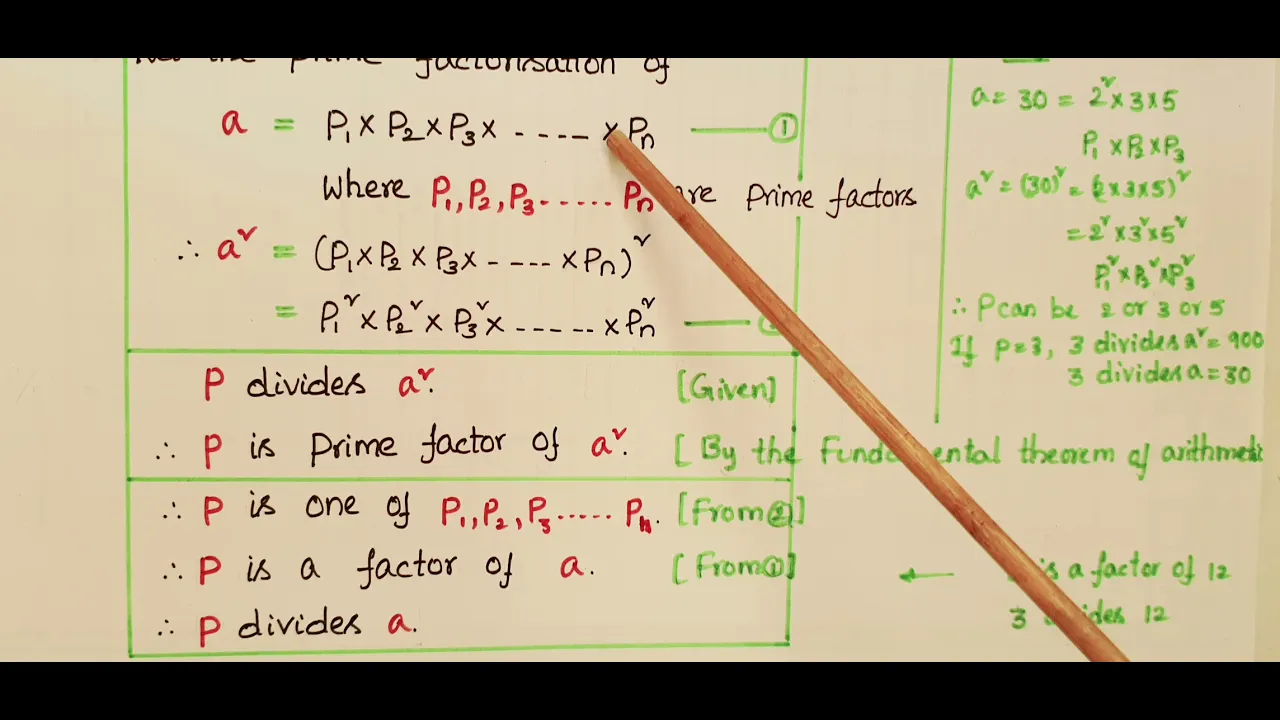 the prime factorisation of
a = P₁ × P₂ × P₃ × ----- × Pₙ —— ①
Where P₁, P₂, P₃ ...... Pₙ are prime factors
∴ a² = (P₁ × P₂ × P₃ × ---- × Pₙ)²
= P₁² × P₂² × P₃² × ------ × Pₙ² ——
P divides a². [Given]
∴ P is Prime factor of a². [By the Fundamental theorem of arithmetic
∴ P is one of P₁, P₂, P₃ ..... Pₙ. [From②]
∴ P is a factor of a. [From①]
∴ P divides a.
a = 30 = 2² × 3 × 5
P₁ × P₂ × P₃
a² = (30)² = (2 × 3 × 5)²
= 2² × 3² × 5²
P₁² × P₂² × P₃²
∴ P can be 2 or 3 or 5
If P=3, 3 divides a² = 900
3 divides a = 30
← is a factor of 12
3 divides 12